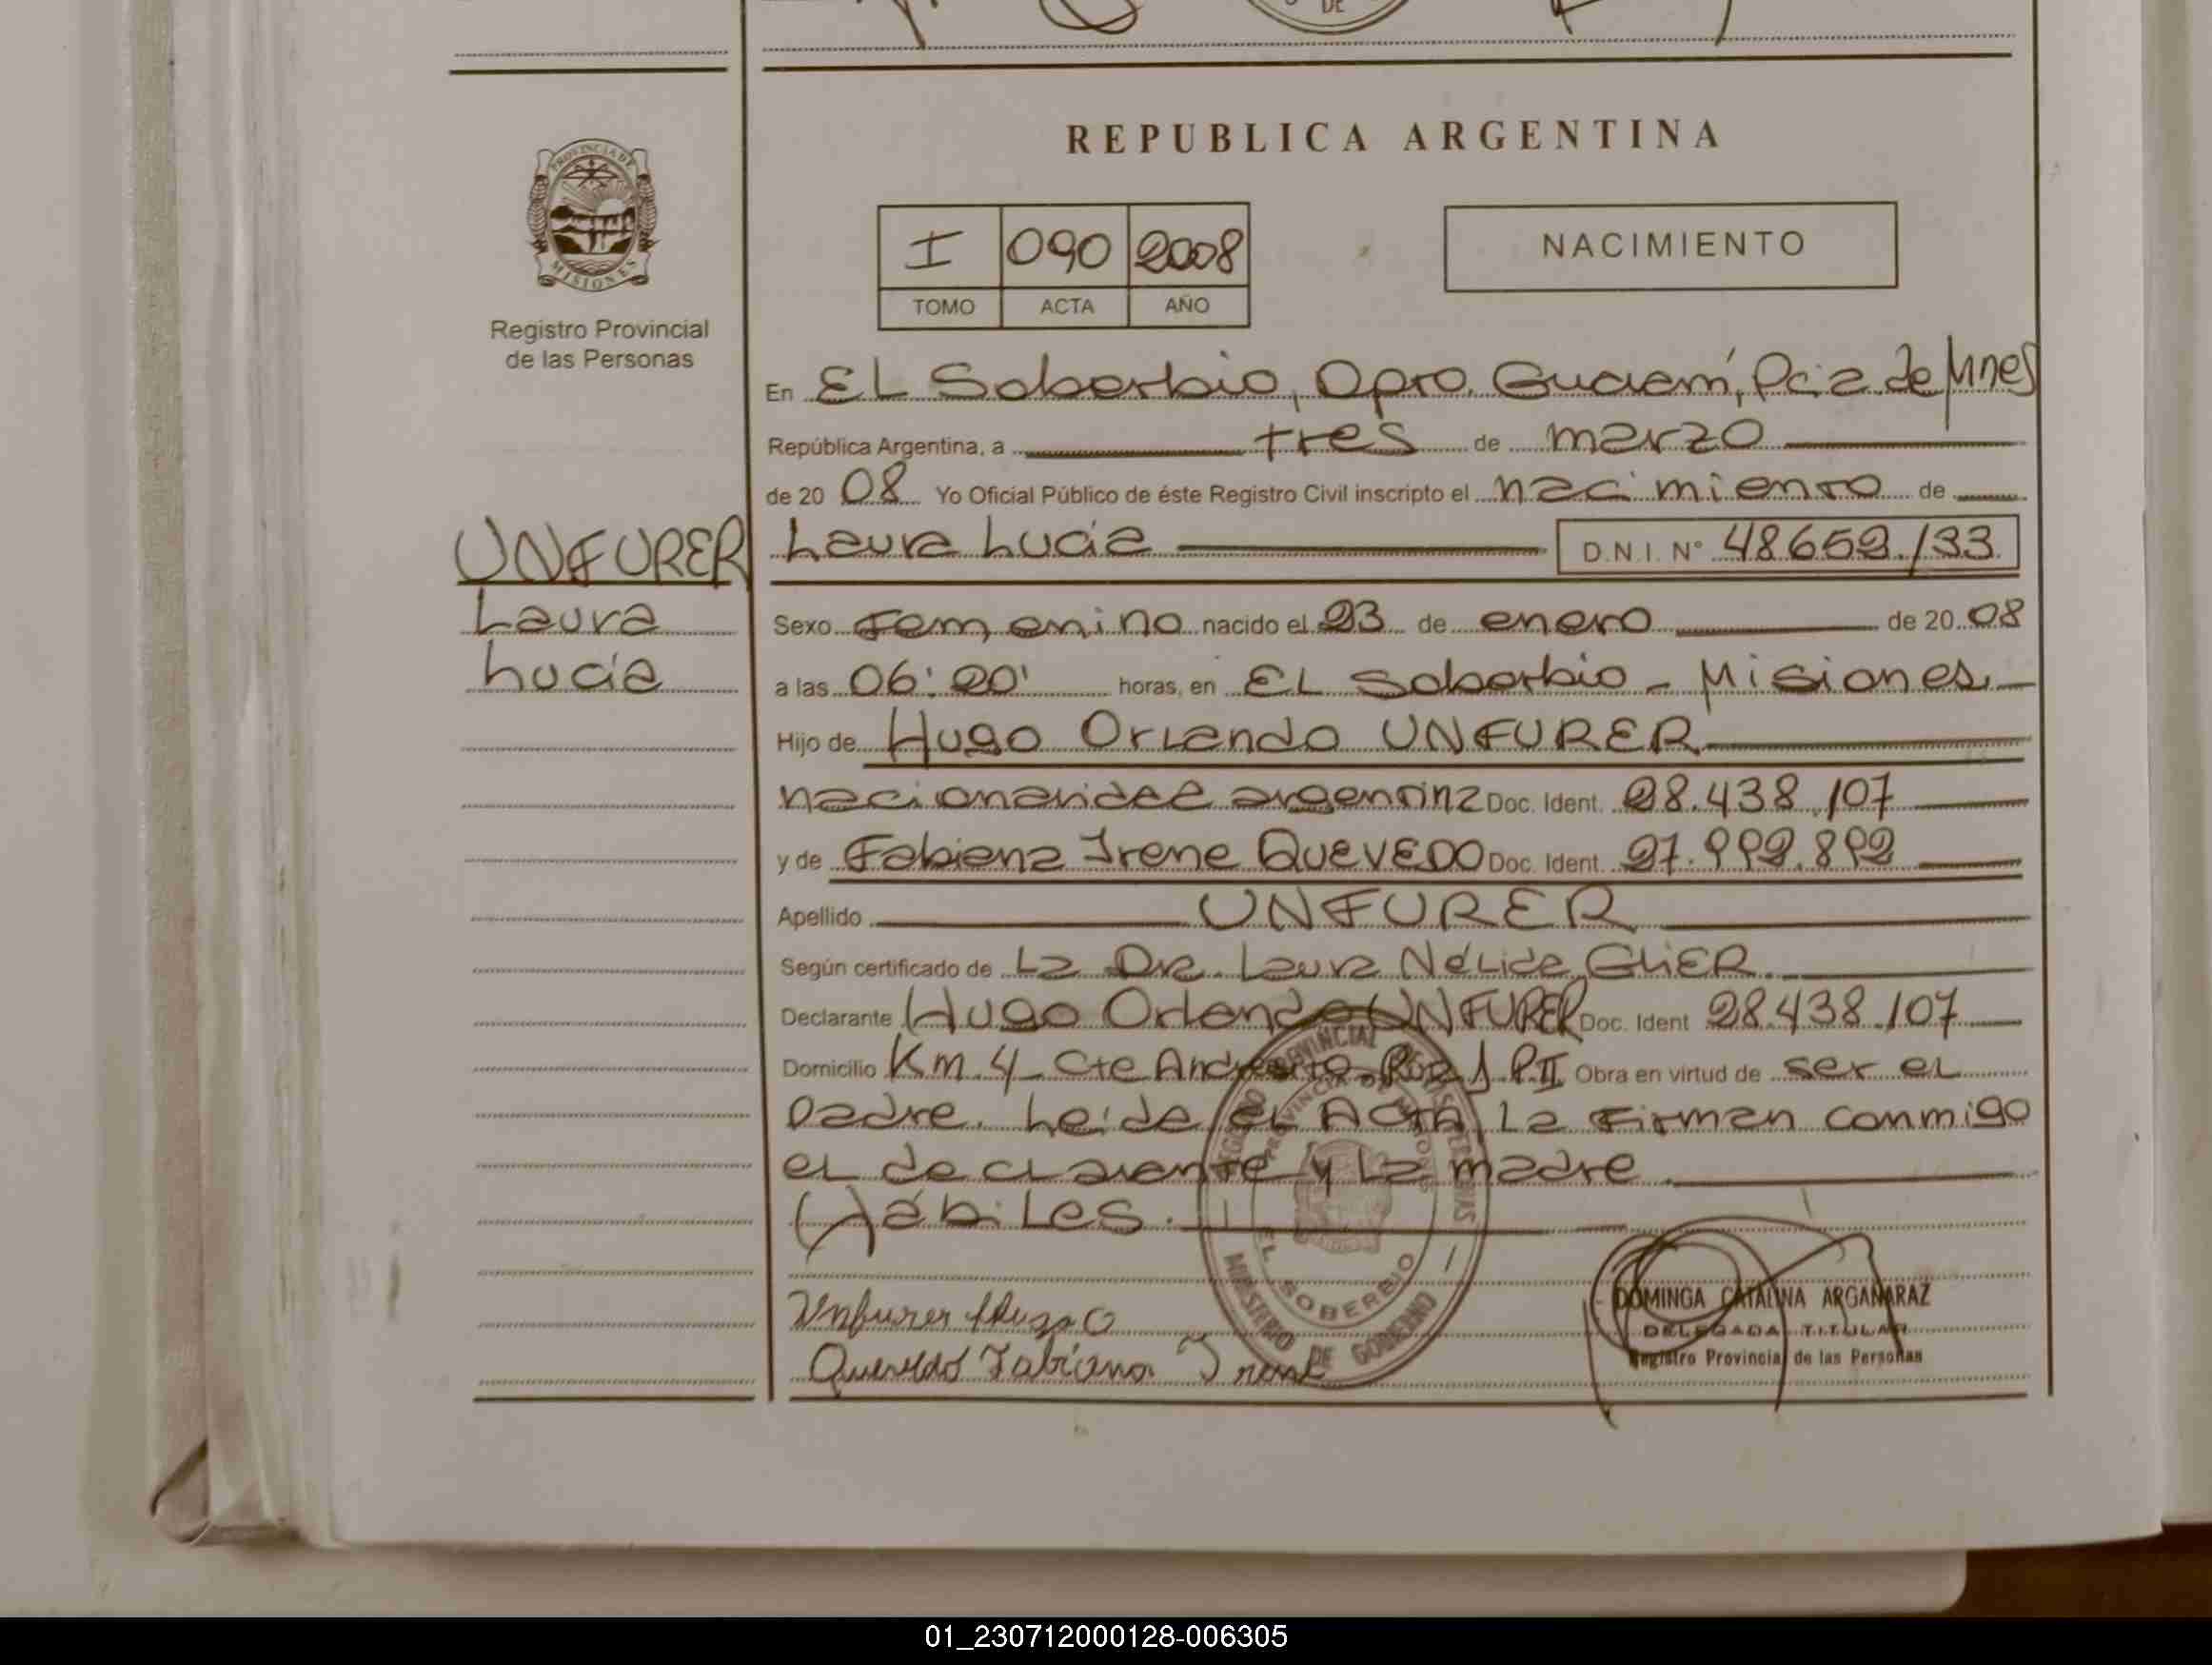 DE
REPUBLICA ARGENTINA
PROVINCIA DE
MISIONES
Registro Provincial
de las Personas
I 090 2008
TOMO ACTA AÑO
NACIMIENTO
En EL Soberbio, Dpto. Guaraní, Pcia de Mnes
República Argentina, a tres de marzo
de 20 08 Yo Oficial Público de éste Registro Civil inscripto el nacimiento de
UNFURER
Laura
Lucía
Laura Lucía D.N.I. N° 48652.133
Sexo Femenino nacido el 23 de enero de 20 08
a las 06:20' horas, en EL Soberbio - Misiones.
Hijo de Hugo Orlando UNFURER
nacionalidad argentina Doc. Ident. 28.438.107
y de Fabiana Irene QUEVEDO Doc. Ident. 27.992.892
Apellido UNFURER
Según certificado de La Dra. Laura Nélida GLIER
Declarante Hugo Orlando UNFURER Doc. Ident 28.438.107
Domicilio Km. 4 - Cte Andresito P.II Obra en virtud de ser el
Padre. Leída el ACTA La Firman conmigo
el declarante y La madre
Hábiles.
REGISTRO PROVINCIAL DE LAS PERSONAS
PROVINCIA DE MISIONES
EL SOBERBIO
MINISTERIO DE GOBIERNO
Unfurer Hugo O
Quevedo Fabiana Irene
DOMINGA CATALINA ARGAÑARAZ
DELEGADA TITULAR
Registro Provincial de las Personas
01_230712000128-006305